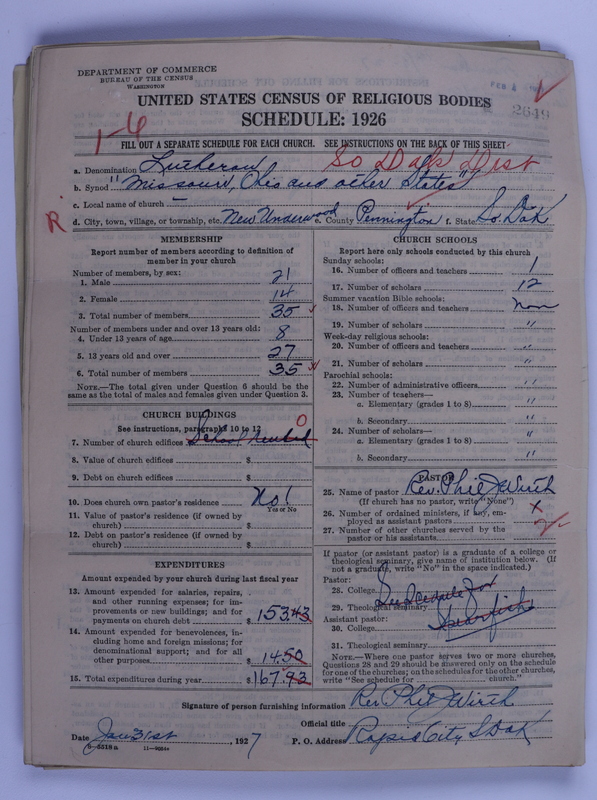 DEPARTMENT OF COMMERCE
BUREAU OF THE CENSUS
WASHINGTON
FEB 4
2649
UNITED STATES CENSUS OF RELIGIOUS BODIES
SCHEDULE: 1926
1-6
FILL OUT A SEPARATE SCHEDULE FOR EACH CHURCH. SEE INSTRUCTIONS ON THE BACK OF THIS SHEET
So Dak Dist
a. Denomination Lutheran
b. Synod "Missouri, Ohio and other States"
c. Local name of church —
R d. City, town, village, or township, etc. New Underwood e. County Pennington f. State So. Dak
MEMBERSHIP
Report number of members according to definition of member in your church
Number of members, by sex:
1. Male 21
2. Female 14
3. Total number of members 35
Number of members under and over 13 years old:
4. Under 13 years of age 8
5. 13 years old and over 27
6. Total number of members 35
NOTE.—The total given under Question 6 should be the
same as the total of males and females given under Question 3.
CHURCH BUILDINGS
See instructions, paragraphs 10 to 12
7. Number of church edifices School Rented 0
8. Value of church edifices $
9. Debt on church edifices $
10. Does church own pastor's residence No!
Yes or No
11. Value of pastor's residence (if owned by
church) $
12. Debt on pastor's residence (if owned by
church) $
EXPENDITURES
Amount expended by your church during last fiscal year
13. Amount expended for salaries, repairs,
and other running expenses; for im-
provements or new buildings; and for
payments on church debt $153.43
14. Amount expended for benevolences, in-
cluding home and foreign missions; for
denominational support; and for all
other purposes $14.50
15. Total expenditures during year $167.93
CHURCH SCHOOLS
Report here only schools conducted by this church
Sunday schools:
16. Number of officers and teachers 1
17. Number of scholars 12
Summer vacation Bible schools:
18. Number of officers and teachers non
19. Number of scholars "
Week-day religious schools:
20. Number of officers and teachers "
21. Number of scholars "
Parochial schools:
22. Number of administrative officers "
23. Number of teachers—
a. Elementary (grades 1 to 8) "
b. Secondary "
24. Number of scholars—
a. Elementary (grades 1 to 8) "
b. Secondary "
PASTOR
25. Name of pastor Rev. Phil J Wirth
(If church has no pastor, write "None")
26. Number of ordained ministers, if any, em-
ployed as assistant pastors x
27. Number of other churches served by the
pastor or his assistants
If pastor (or assistant pastor) is a graduate of a college or
theological seminary, give name of institution below. (If
not a graduate, write "No" in the space indicated.)
Pastor:
28. College See Scedule for
29. Theological seminary Spearfish
Assistant pastor:
30. College
31. Theological seminary
NOTE.—Where one pastor serves two or more churches,
Questions 28 and 29 should be answered only on the schedule
for one of the churches; on the schedules for the other churches,
write "See schedule for church."
Signature of person furnishing information Rev Phil J Wirth
Official title
Date Jan 31st, 1927 P. O. Address Rapid City S Dak
8-5518 a 11-9034